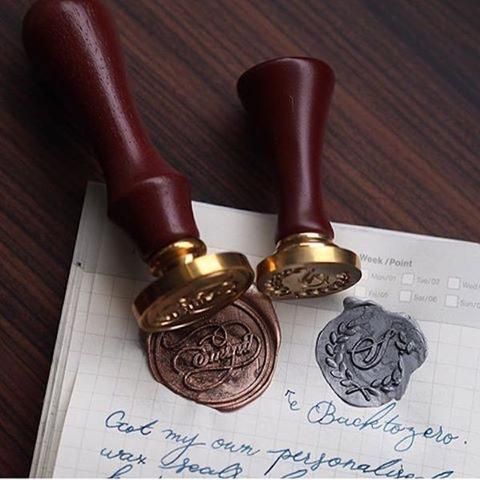 Week /Point
Mon/01 Tue/02 Wed
Fri/05 Sat/06 Sun
S
Backtozero.
Got my own personalised
wax seals